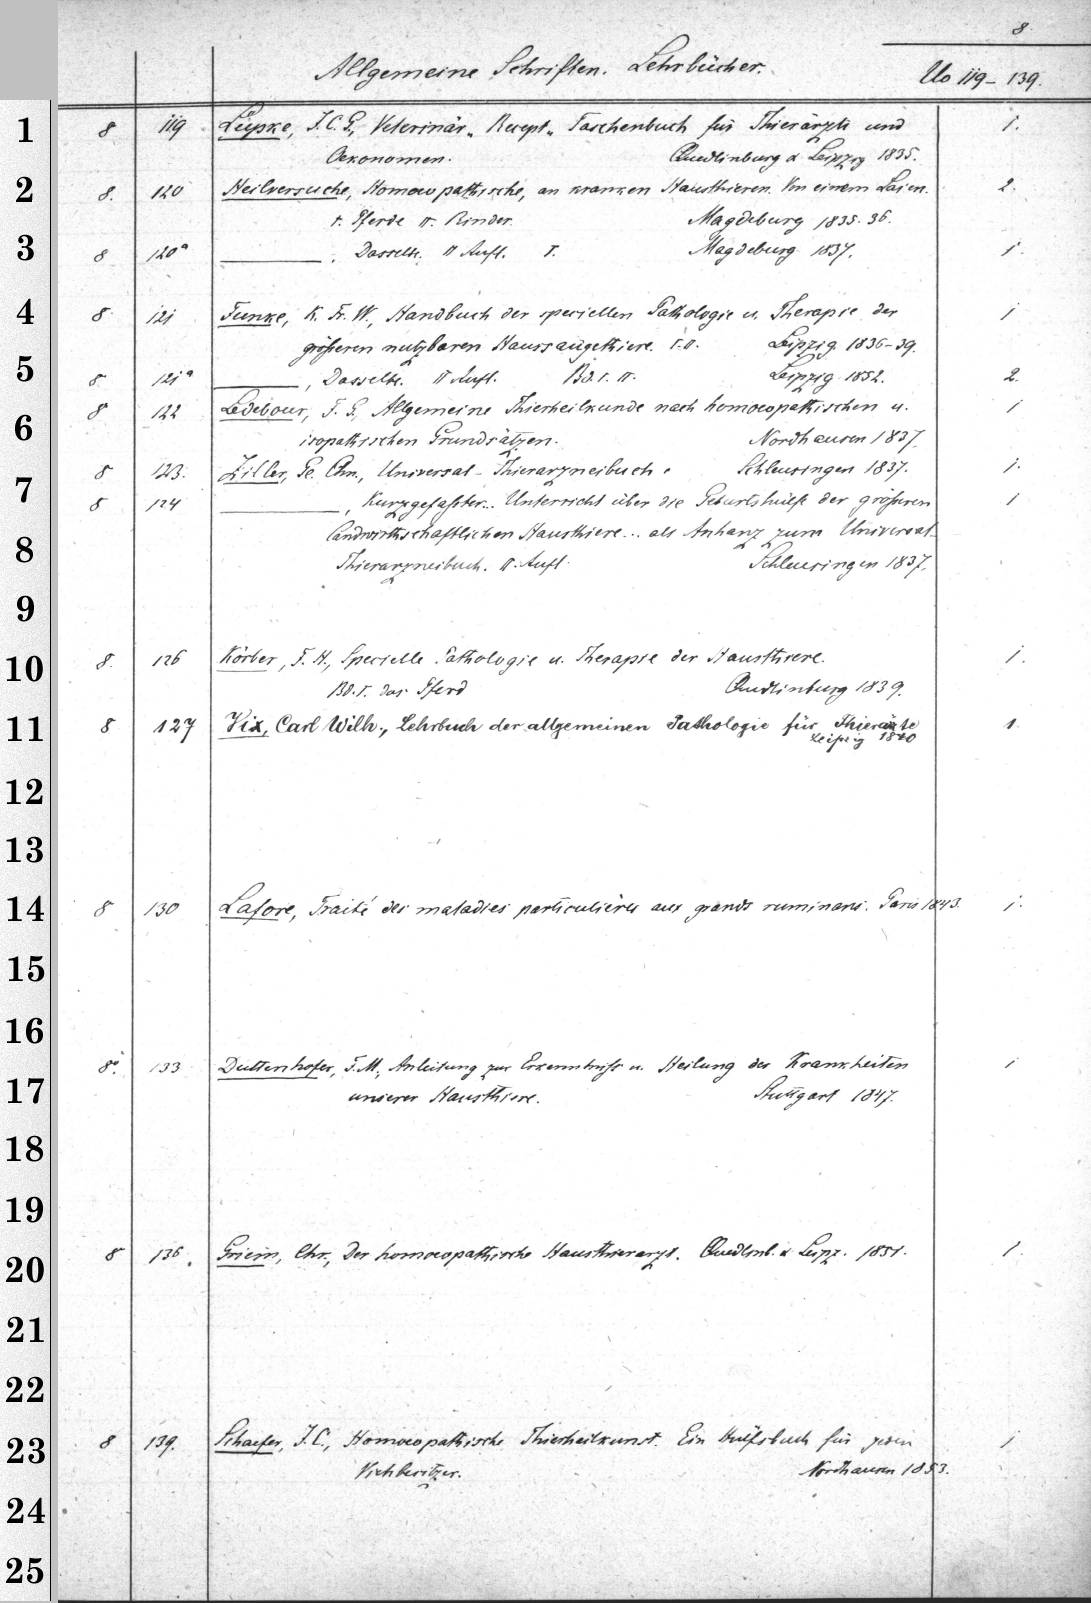 8
Allgemeine Schriften. Lehrbücher.
Uo 119-139.
1 8 119 Lüpke, J. C. G., Veterinär-Recept-Taschenbuch für Thierärzte und 1.
Oekonomen. Quedlinburg & Leipzig 1835.
2 8. 120 Heilversuche, Homoeopathische, an kranken Hausthieren. Von einem Laien. 2.
I. Pferde II. Rinder. Magdeburg 1835. 36.
3 8 120a ———. Dasselbe. II Aufl. I. Magdeburg 1837. 1
4 8 121 Funke, K. Fr. W., Handbuch der speciellen Pathologie u. Therapie der 1
größeren nutzbaren Haussäugethiere. I. II. Leipzig 1836-39.
5 8 121a ———, Dasselbe. II Aufl. Bd. I. II. Leipzig 1852. 2.
6 8 122 Ledebour, F. G., Allgemeine Thierheilkunde nach homoeopathischen u. 1
isopathischen Grundsätzen. Nordhausen 1837.
7 8 123. Ziller, Ge. Chn., Universal-Thierarzneibuch. Schleusingen 1837. 1.
8 124 ———, Kurzgefaßter... Unterricht über die Geburtshülfe der größeren 1
8 landwirthschaftlichen Hausthiere... als Anhang zum Universal-
Thierarzneibuch. II. Aufl. Schleusingen 1837.
9
10 8. 126 Körber, F. H., Specielle Pathologie u. Therapie der Hausthiere. 1.
Bd. I. das Pferd Quedlinburg 1839.
11 8 127 Vix, Carl Wilh., Lehrbuch der allgemeinen Pathologie für Thierärzte 1.
Leipzig 1840
12
13
14 8 130 Lafore, Traité des maladies particulières aux grands ruminans. Paris 1843. 1.
15
16
8o. 133 Duttenhofer, F. M., Anleitung zur Erkenntniß u. Heilung der Krankheiten 1
17 unserer Hausthiere. Stuttgart 1847.
18
19
20 8 136. Griem, Chr., Der homoeopathische Hausthierarzt. Quedlinb. & Leipz. 1851. 1.
21
22
23 8 139. Schaefer, J. C., Homoeopathische Thierheilkunst. Ein Hülfsbuch für jeden 1
Viehbesitzer. Nordhausen 1853.
24
25